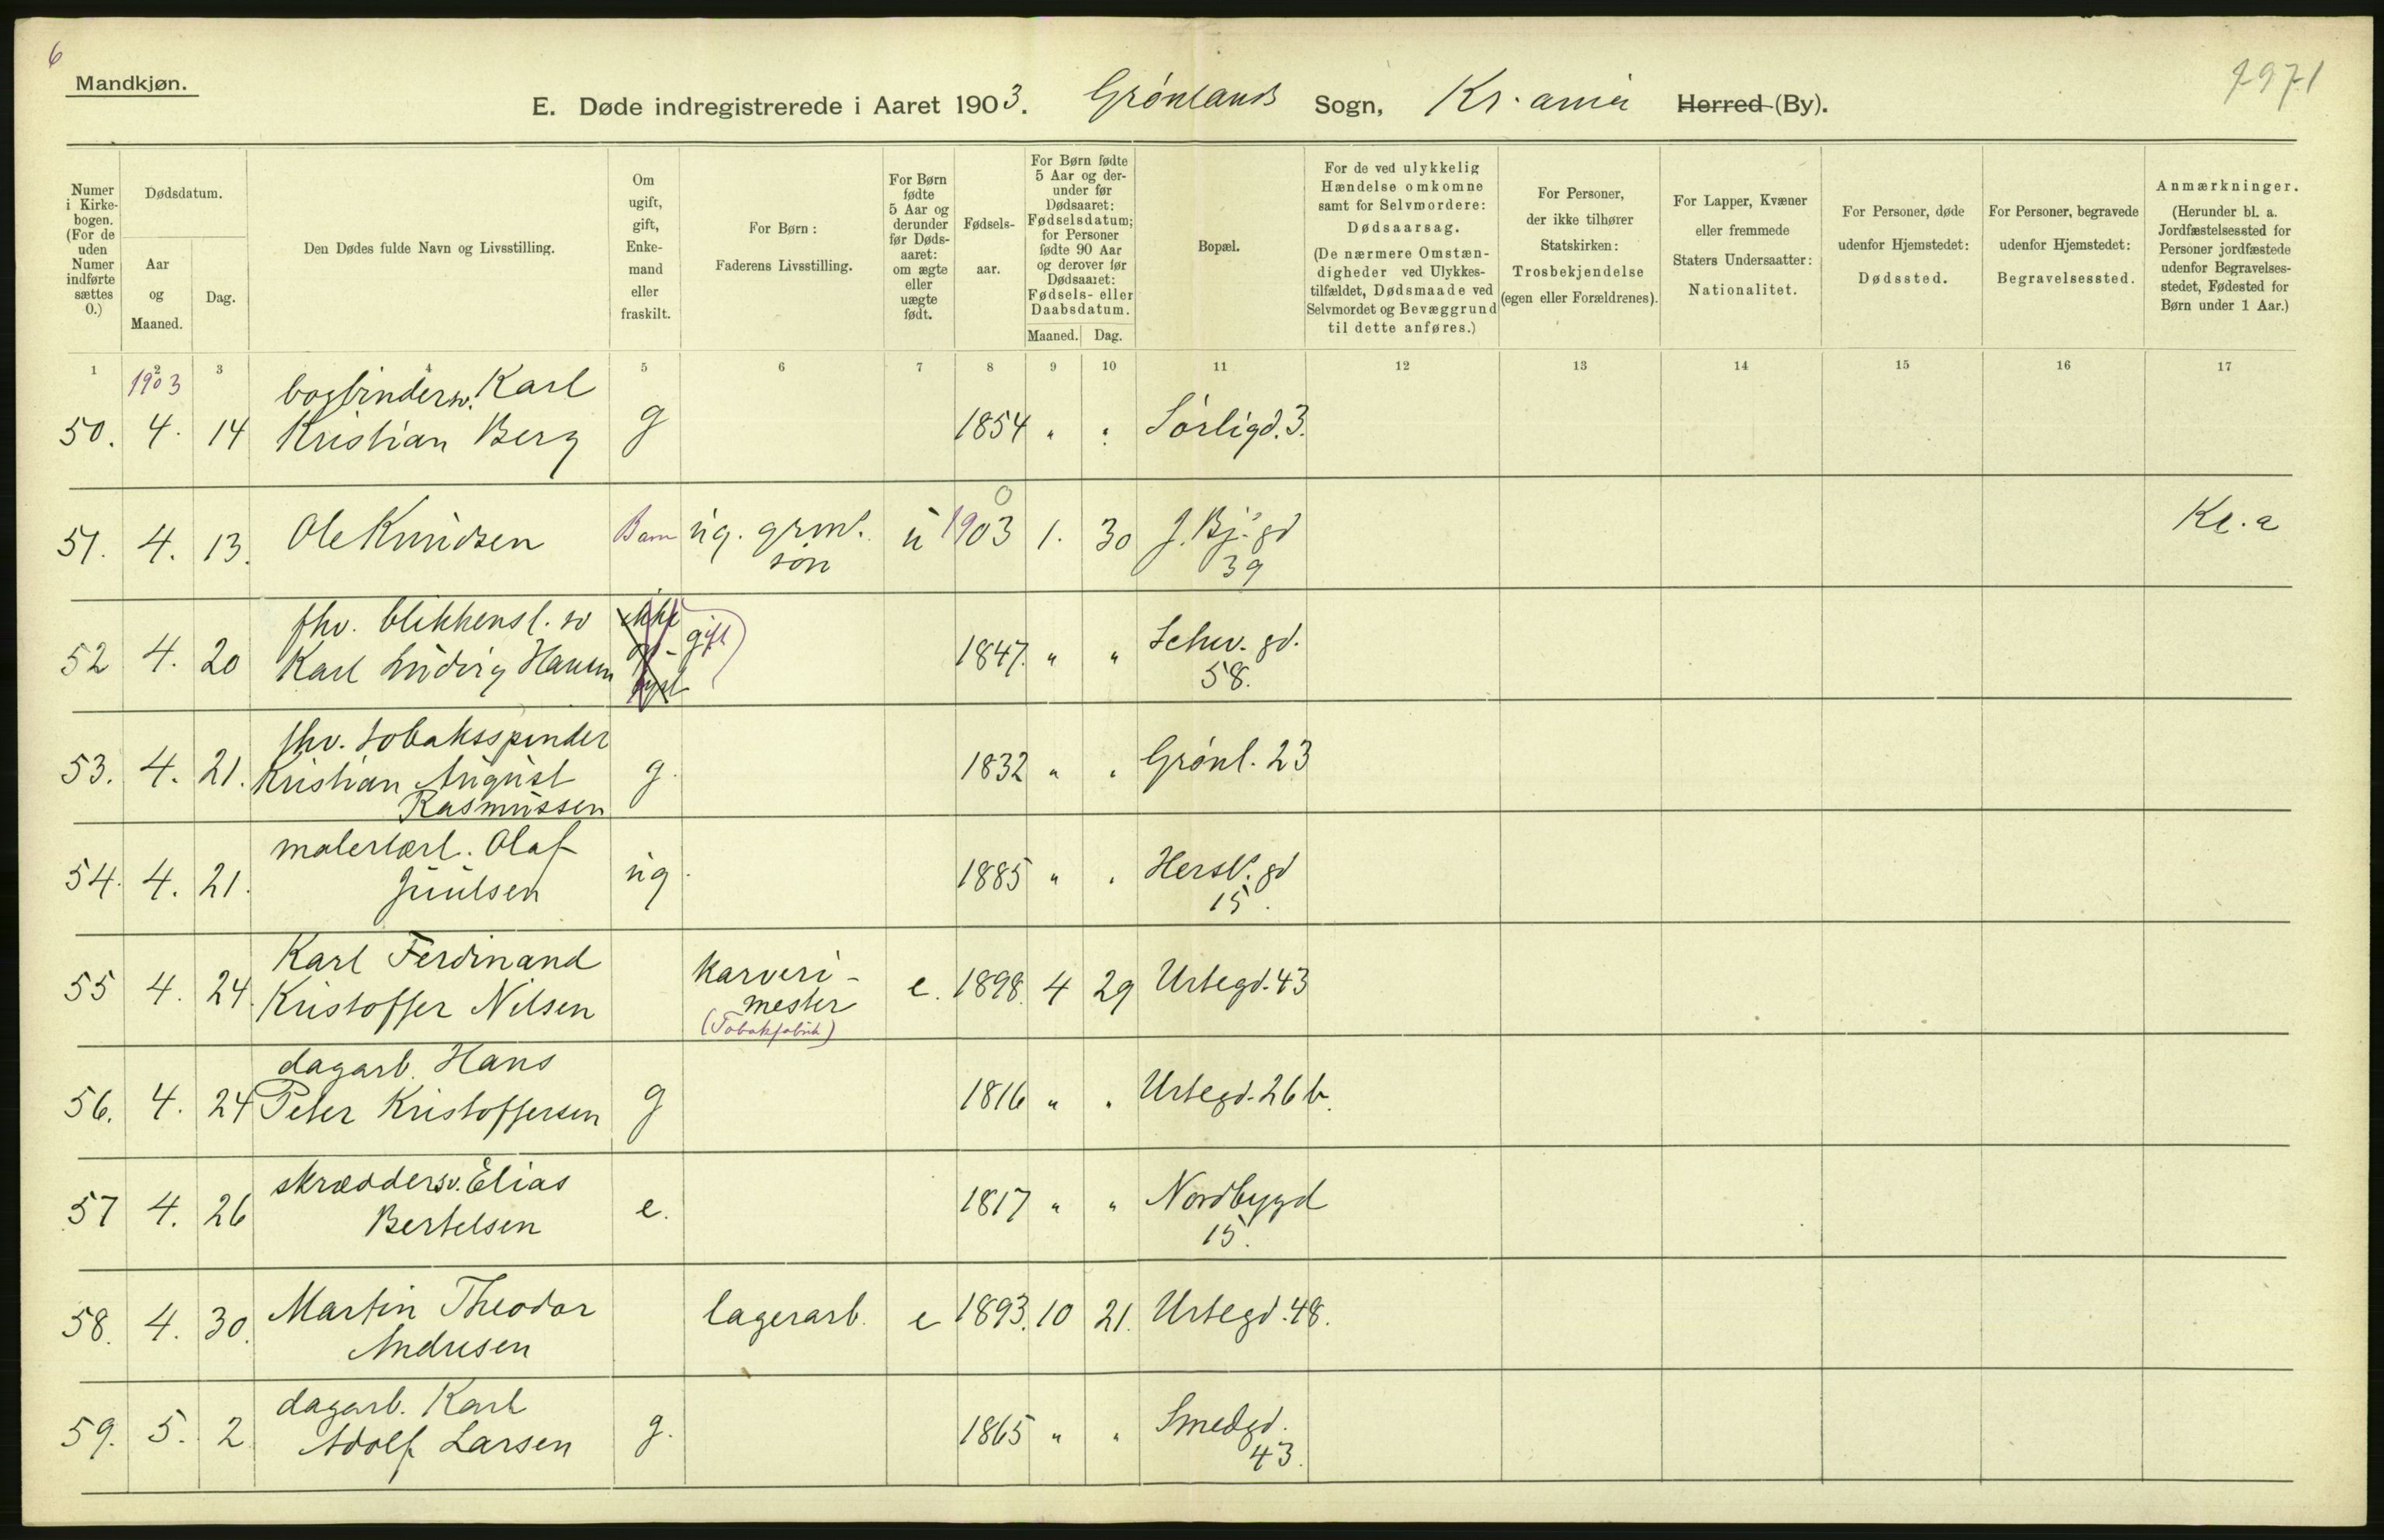 6
Mandkjøn.
E. Døde indregistrerede i Aaret 1903. Grønlands Sogn, Kr.ania Herred (By).
7971
Numer i Kirkebogen. (For de uden Numer indførte sættes 0.)
Dødsdatum.
Aar og Maaned.
Dag.
Den Dødes fulde Navn og Livsstilling.
Om ugift, gift, Enkemand eller fraskilt.
For Børn: Faderens Livsstilling.
For Børn fødte 5 Aar og derunder før Dødsaaret: om ægte eller uægte født.
Fødselsaar.
For Børn fødte 5 Aar og derunder før Dødsaaret: Fødselsdatum; for Personer fødte 90 Aar og derover før Dødsaaret: Fødsels- eller Daabsdatum.
Maaned. Dag.
Bopæl.
For de ved ulykkelig Hændelse omkomne samt for Selvmordere: Dødsaarsag. (De nærmere Omstændigheder ved Ulykkestilfældet, Dødsmaade ved Selvmordet og Bevæggrund til dette anføres.)
For Personer, der ikke tilhører Statskirken: Trosbekjendelse (egen eller Forældrenes).
For Lapper, Kvæner eller fremmede Staters Undersaatter: Nationalitet.
For Personer, døde udenfor Hjemstedet: Dødssted.
For Personer, begravede udenfor Hjemstedet: Begravelsessted.
Anmærkninger. (Herunder bl. a. Jordfæstelsessted for Personer jordfæstede udenfor Begravelsesstedet, Fødested for Børn under 1 Aar.)
1 2 3 4 5 6 7 8 9 10 11 12 13 14 15 16 17
1903
bogbindersv. Karl
50. 4. 14 Kristian Berg g 1854 " " Sörligd. 3.
0
51. 4. 13. Ole Knudsen Barn ug. u 1903 1. 30 J. Bj. gd Kr. a
søn 39
fhv. blikkensl. sv ikke
52 4. 20 Karl Ludvig Hansen gift 1847. " " Schw. gd.
58.
fhv. tobaksspinder
53. 4. 21. Kristian August g. 1832 " " Grønl. 23
Rasmussen
malerlærl. Olaf
54. 4. 21. Juulsen ug. 1885 " " Hersl. gd
15.
Karl Ferdinand
55 4. 24. Kristoffer Nilsen karveri- e. 1898. 4 29 Urtegd. 43
mester
(Tobakfabrik)
dagarb. Hans
56. 4. 24 Peter Kristoffersen g 1816 " " Urtegd. 26 b.
skræddersv. Elias
57 4. 26 Bertelsen e. 1817 " " Nordbygd
15.
58. 4. 30. Martin Theodor lagerarb. e 1893. 10 21. Urtegd. 48.
Andresen
dagarb. Karl
59. 5. 2 Adolf Larsen g. 1865 " " Smedgd.
43.